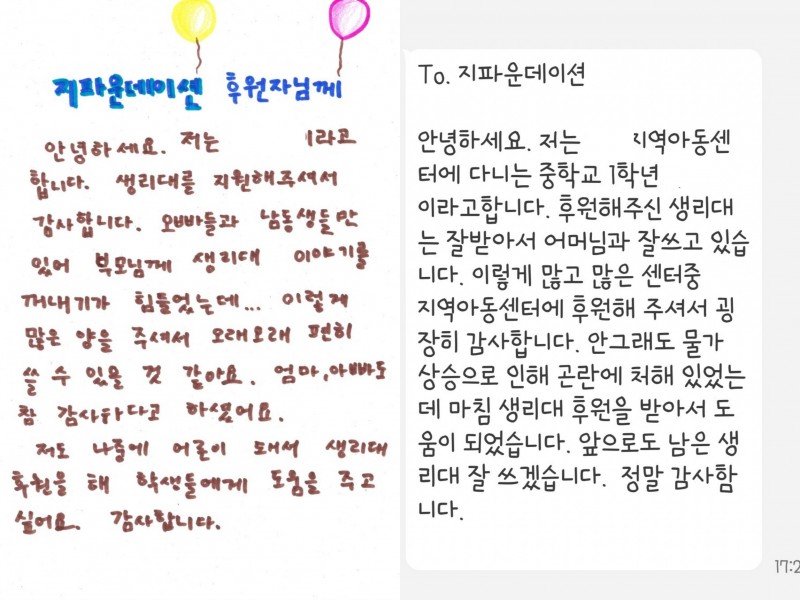 지파운데이션 후원자님께
안녕하세요. 저는 이라고
합니다. 생리대를 지원해주셔서
감사합니다. 오빠들과 남동생들만
있어 부모님께 생리대 이야기를
꺼내기가 힘들었는데... 이렇게
많은 양을 주셔서 오래오래 편히
쓸 수 있을 것 같아요. 엄마,아빠도
참 감사하다고 하셨어요.
저도 나중에 어른이 돼서 생리대
후원을 해 학생들에게 도움을 주고
싶어요. 감사합니다.
To. 지파운데이션
안녕하세요. 저는 지역아동센
터에 다니는 중학교 1학년
이라고합니다. 후원해주신 생리대
는 잘받아서 어머님과 잘쓰고 있습
니다. 이렇게 많고 많은 센터중
지역아동센터에 후원해 주셔서 굉
장히 감사합니다. 안그래도 물가
상승으로 인해 곤란에 처해 있었는
데 마침 생리대 후원을 받아서 도
움이 되었습니다. 앞으로도 남은 생
리대 잘 쓰겠습니다. 정말 감사함
니다.